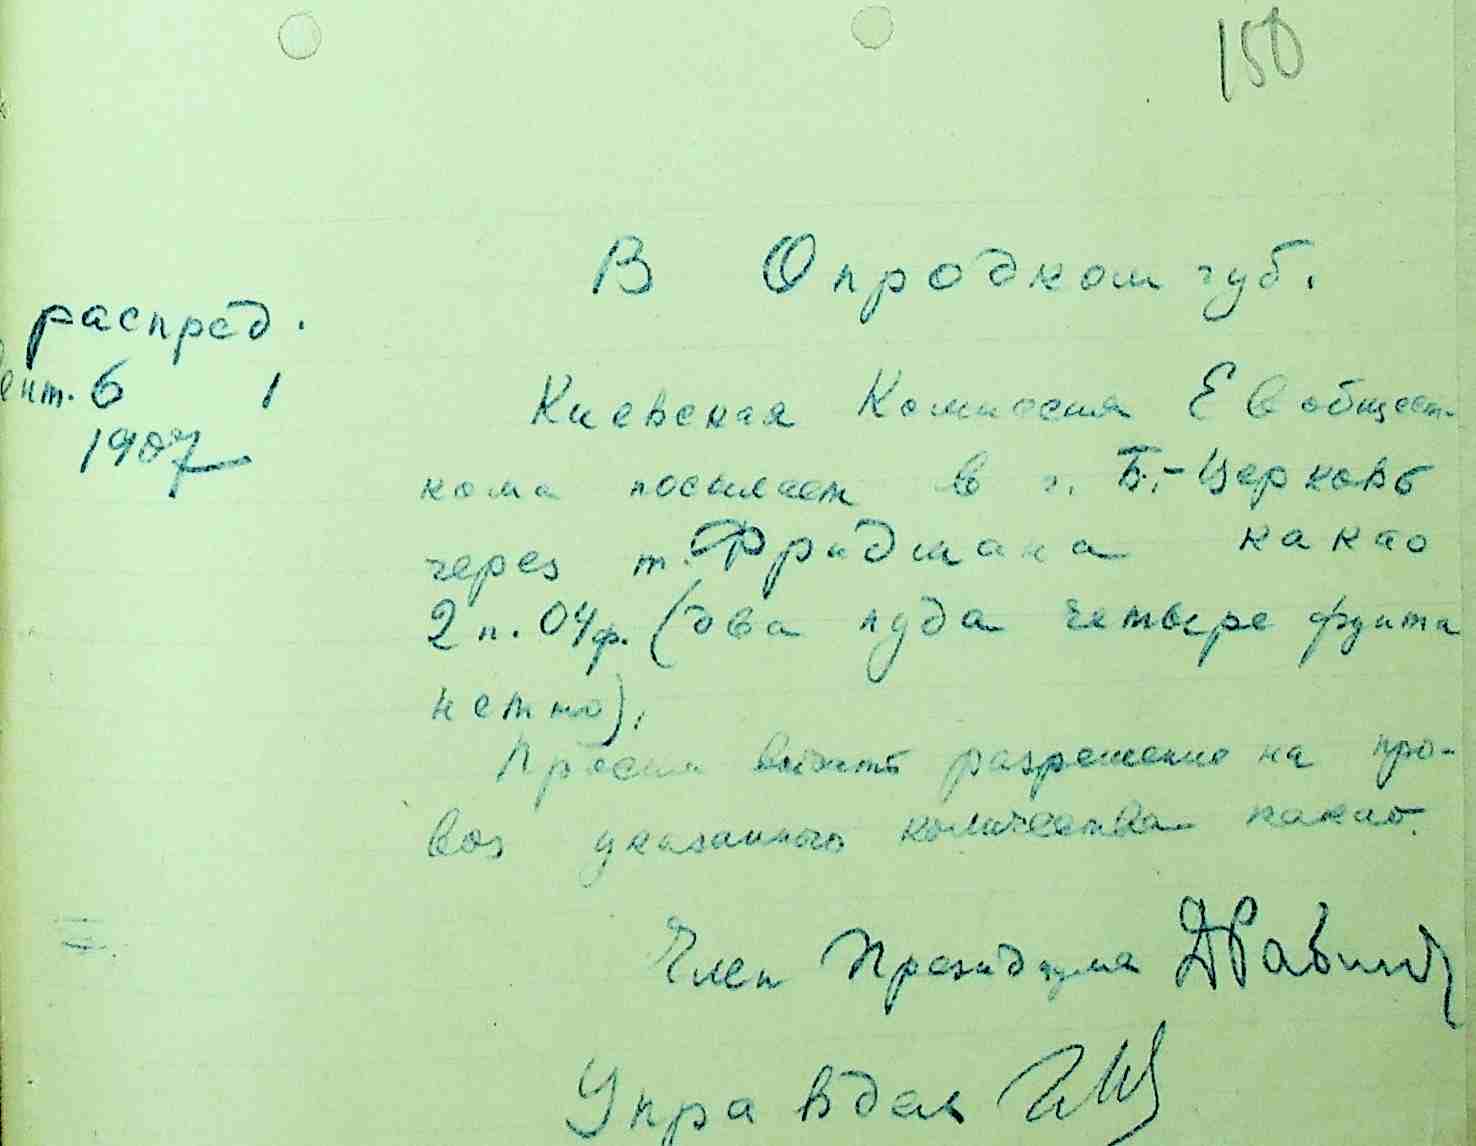 150
В Опродкомгуб.
распред.
ент. 6 1
1907
Киевская Комиссия Евобщест-
кома посылает в г. Б.-Церковь
через т. Фридмана какао
2 п. 04 ф. (два пуда четыре фунта
нетто).
Просим выдать разрешение на про-
воз указанного количества какао.
Член Президиума ДРабин
Управдел